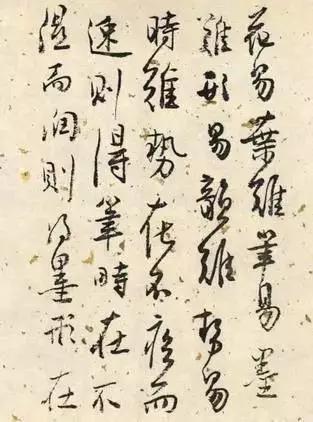 花易葉難筆易墨
難形易韻難勢易
時難勢在不疾而
速則得筆時在不
濕而潤則得墨形在